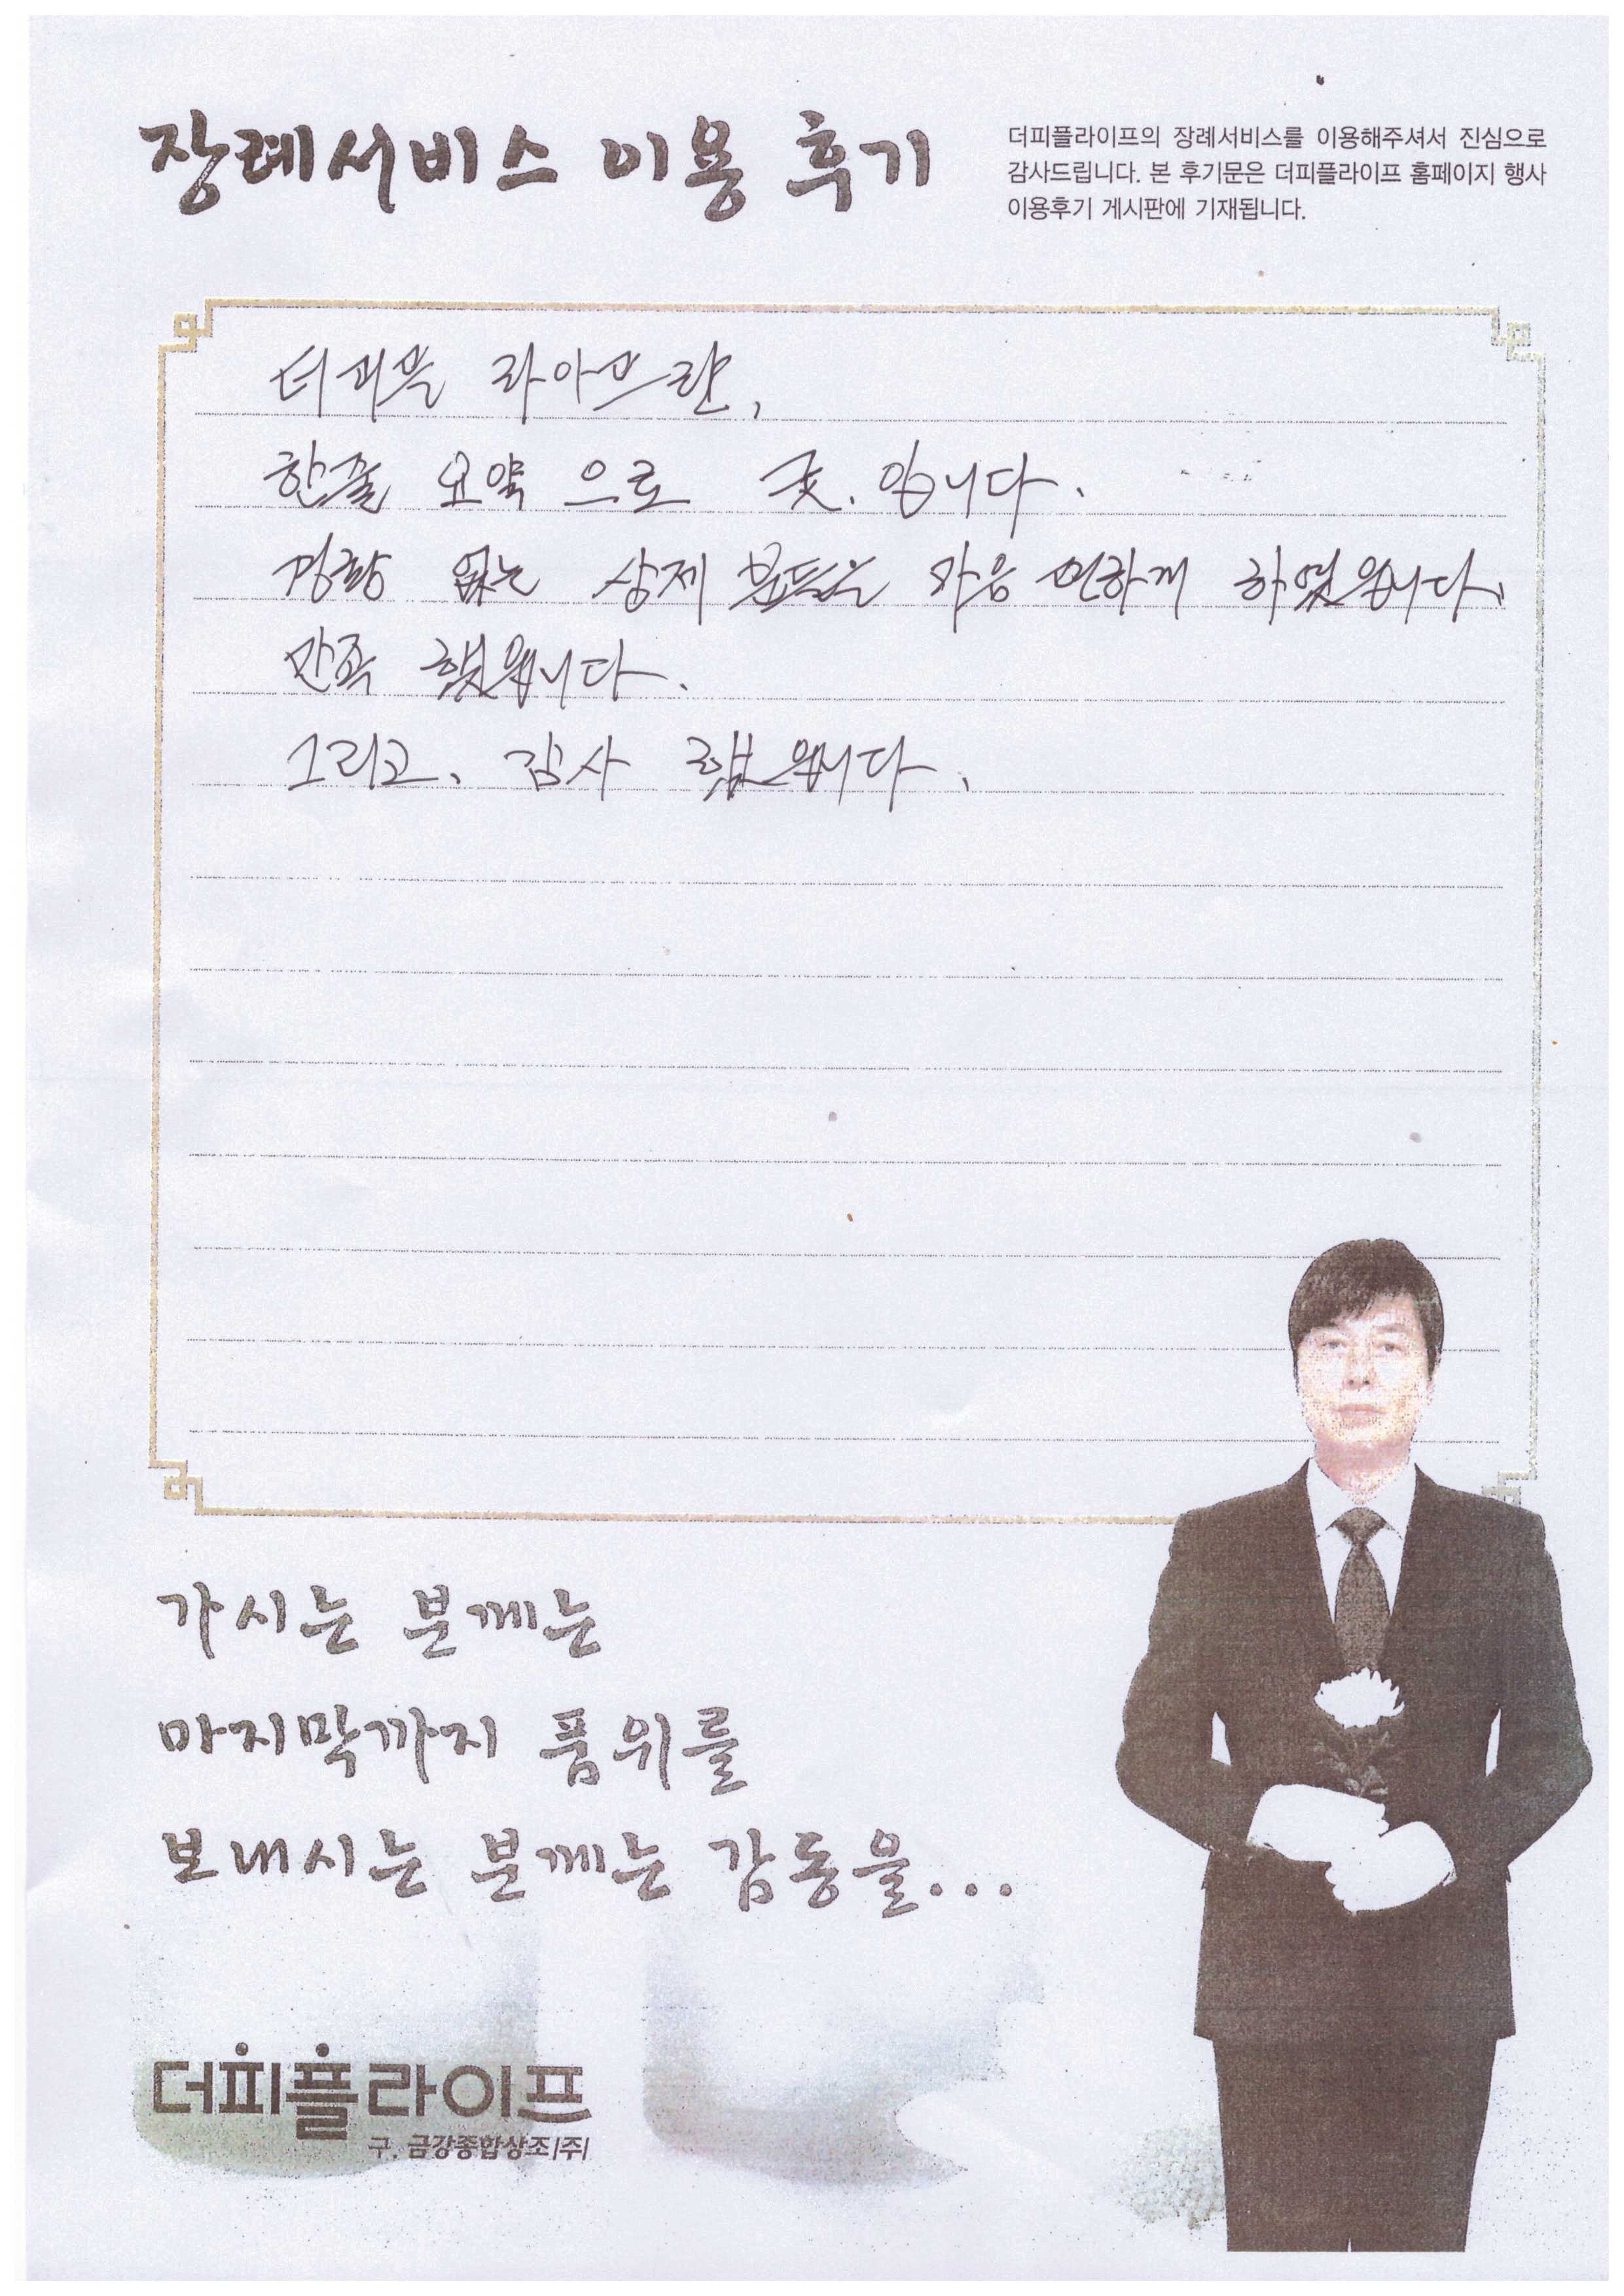 장례서비스 이용 후기
더피플라이프의 장례서비스를 이용해주셔서 진심으로
감사드립니다. 본 후기문은 더피플라이프 홈페이지 행사
이용후기 게시판에 기재됩니다.
더피플 라이프란,
한줄 요약 으로 굿. 입니다.
경황 없는 상제 분들을 마음 편하게 하였읍니다.
만족 했읍니다.
그리고, 감사 했읍니다.
가시는 분께는
마지막까지 품위를
보내시는 분께는 감동을...
더피플라이프
구. 금강종합상조|주|